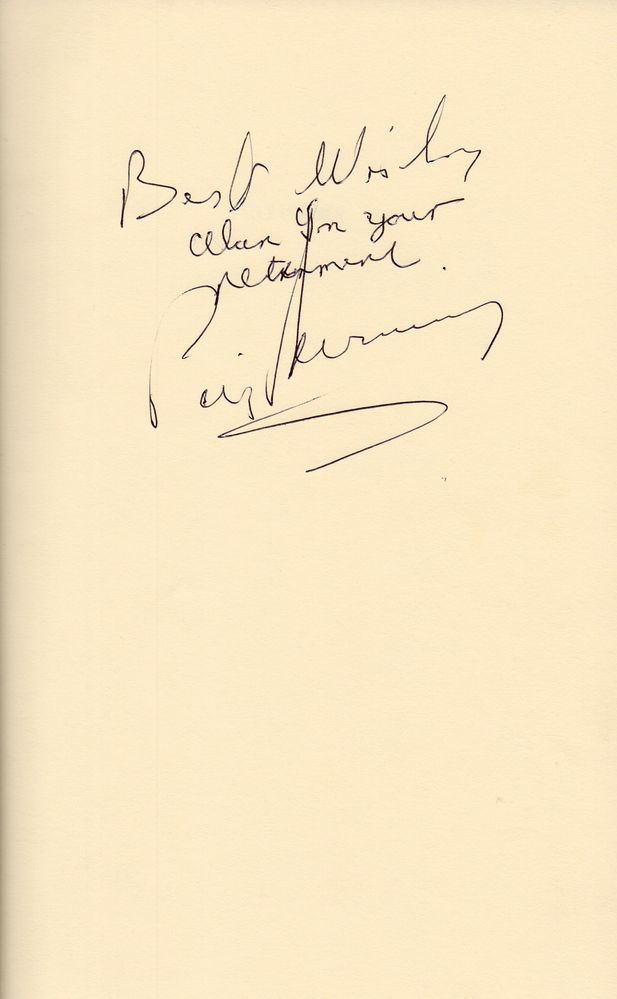 Best Wishes
Alan on your
retirement.